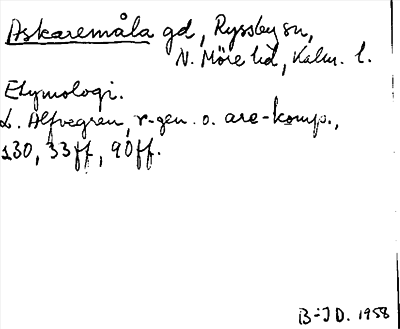 Askaremåla gd, Ryssby sn,
N. Möre hd, Kalm. l.
Etymologi.
L. Alfvegren, r-gen. o. are-komp.,
s30, 33ff, 90ff.
B-J D. 1958